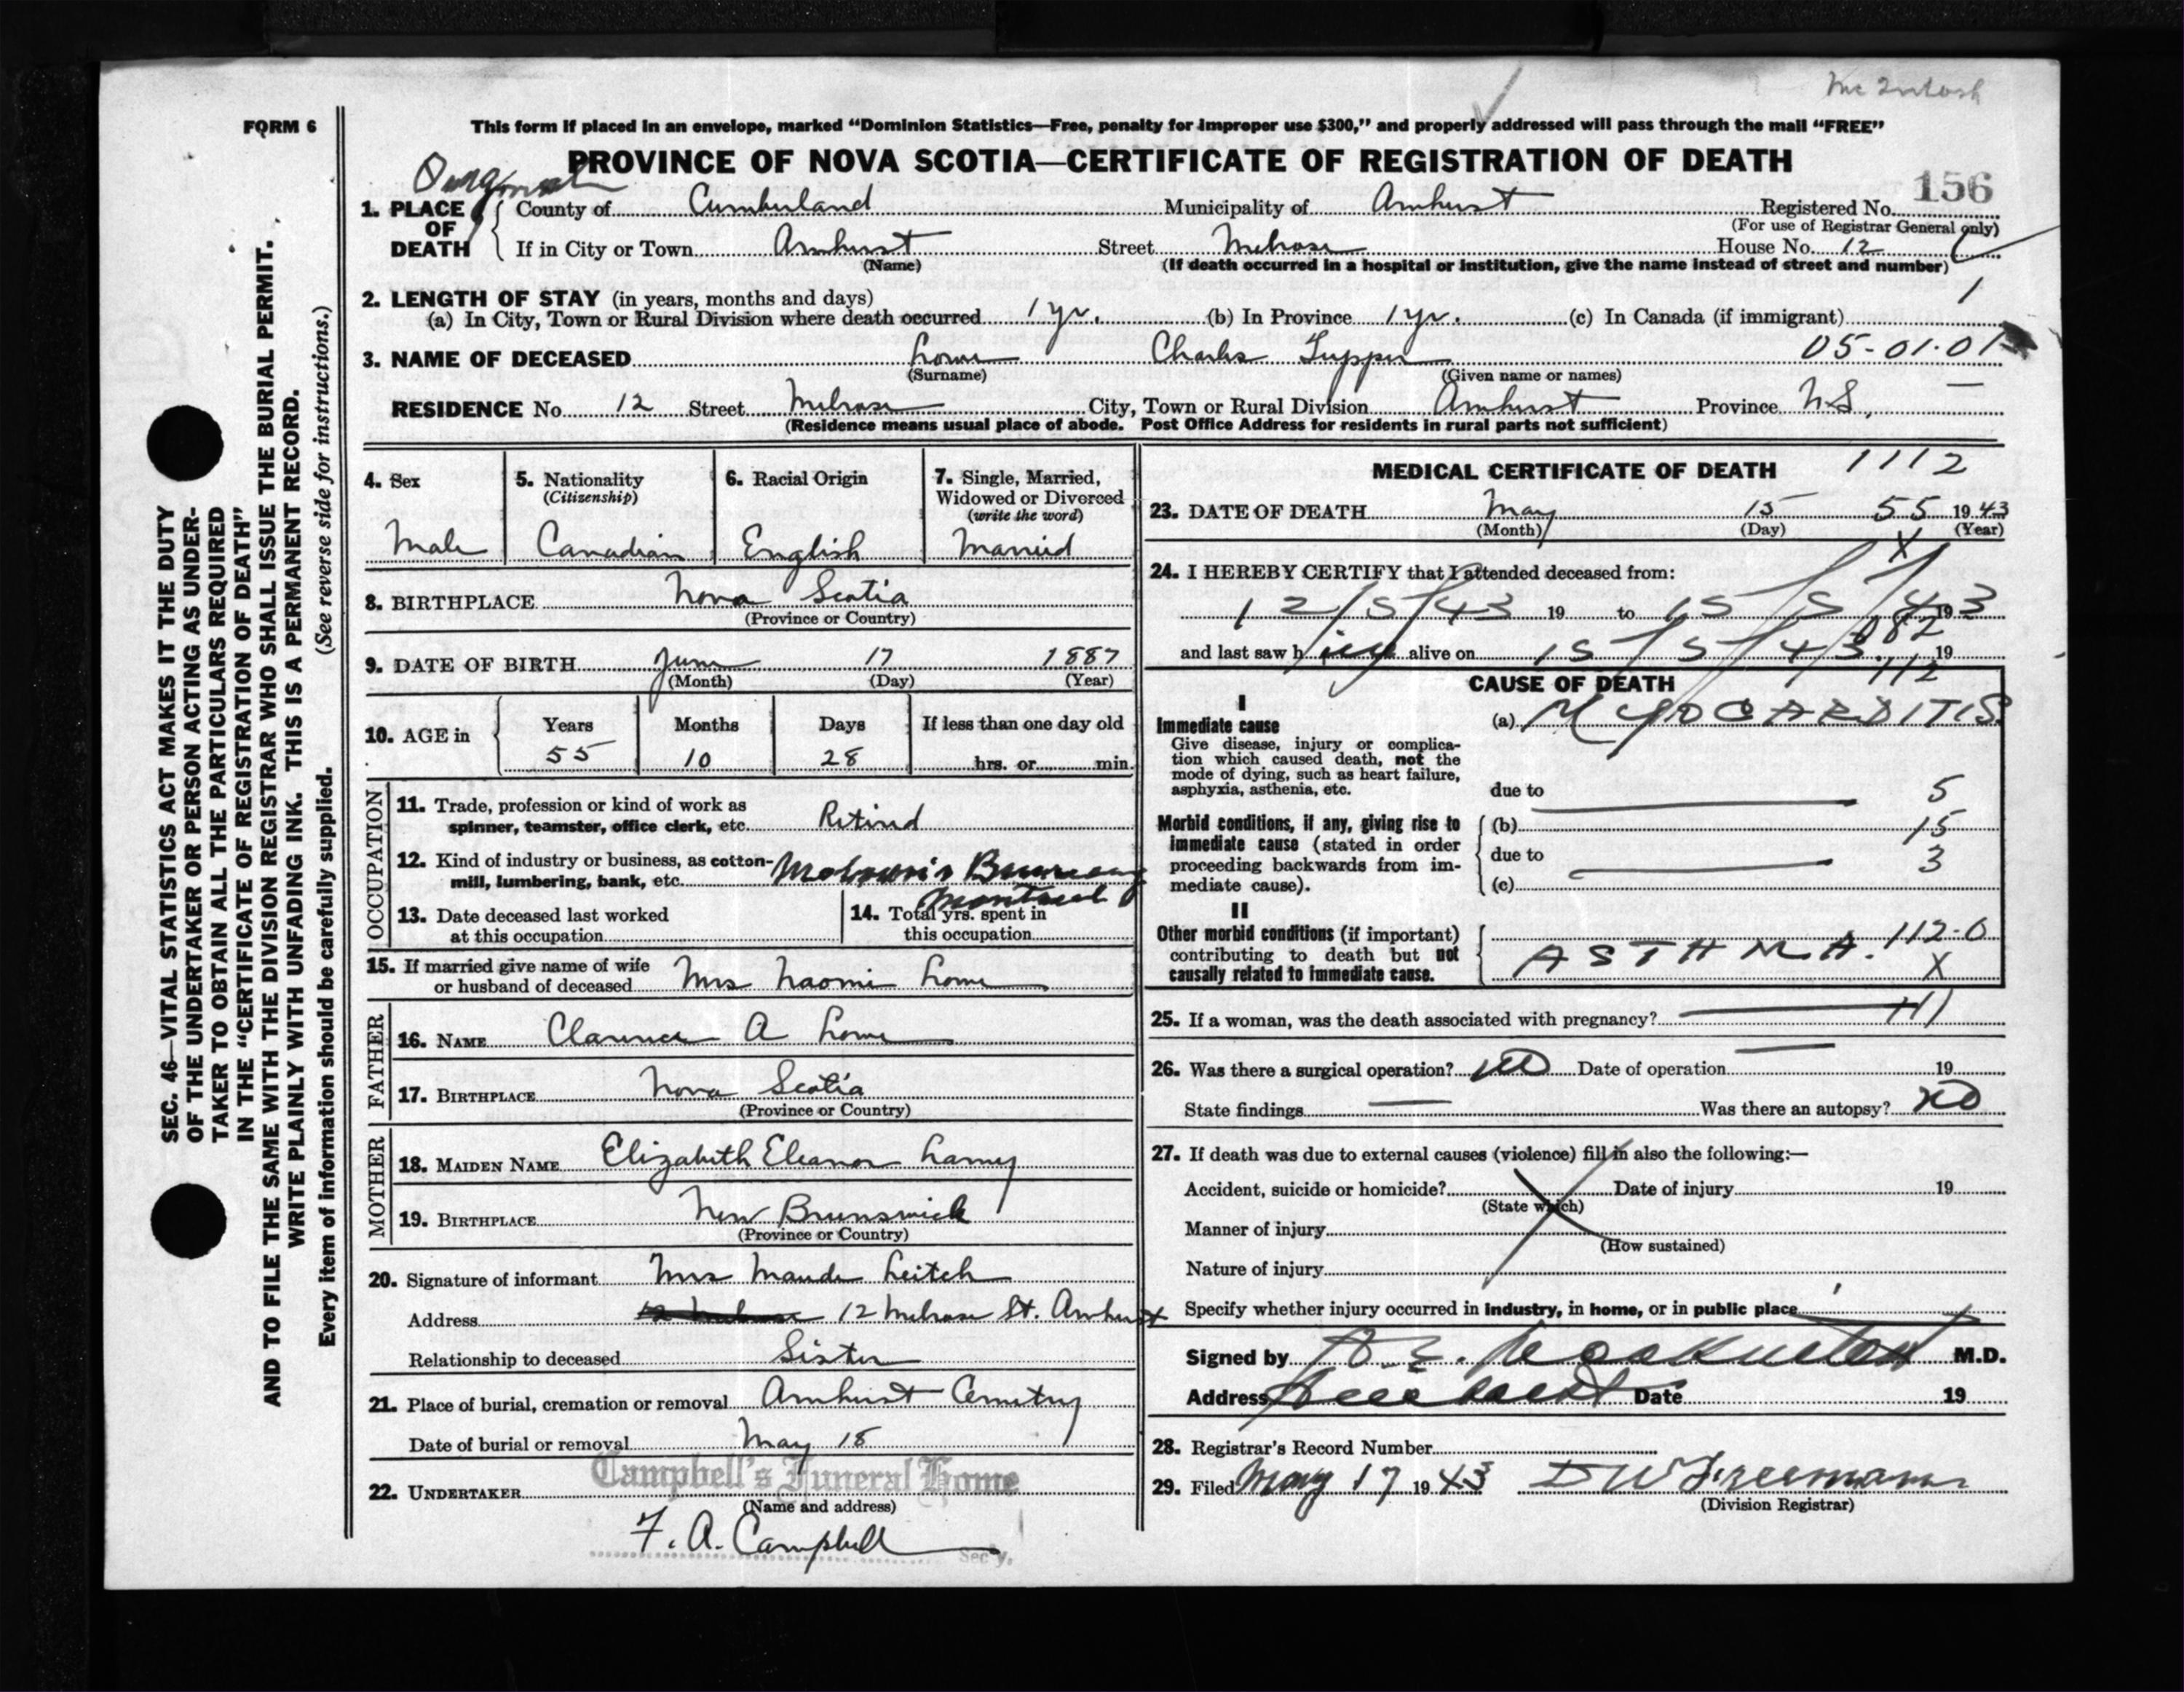 Mc Intosh
FORM 6
This form if placed in an envelope, marked "Dominion Statistics—Free, penalty for improper use $300," and properly addressed will pass through the mail "FREE"
PROVINCE OF NOVA SCOTIA—CERTIFICATE OF REGISTRATION OF DEATH
156
1. PLACE OF DEATH
County of Cumberland Municipality of Amherst Registered No.
(For use of Registrar General only)
If in City or Town Amherst Street Melrose House No. 12
(Name) (If death occurred in a hospital or institution, give the name instead of street and number)
2. LENGTH OF STAY (in years, months and days) 1
(a) In City, Town or Rural Division where death occurred 1 yr. (b) In Province 1 yr. (c) In Canada (if immigrant)
3. NAME OF DECEASED Lowe Charles Tupper 05-01-01
(Surname) (Given name or names)
RESIDENCE No. 12 Street Melrose City, Town or Rural Division Amherst Province N.S.
(Residence means usual place of abode. Post Office Address for residents in rural parts not sufficient)
4. Sex
Male
5. Nationality
(Citizenship)
Canadian
6. Racial Origin
English
7. Single, Married,
Widowed or Divorced
(write the word)
Married
8. BIRTHPLACE Nova Scotia
(Province or Country)
9. DATE OF BIRTH June 17 1887
(Month) (Day) (Year)
10. AGE in
Years Months Days If less than one day old
55 10 28 hrs. or min.
OCCUPATION
11. Trade, profession or kind of work as
spinner, teamster, office clerk, etc. Retired
12. Kind of industry or business, as cotton-
mill, lumbering, bank, etc.
Montreal
13. Date deceased last worked
at this occupation
14. Total yrs. spent in
this occupation
15. If married give name of wife
or husband of deceased Mrs Naomi Lowe
FATHER
16. NAME Clarence A Lowe
17. BIRTHPLACE Nova Scotia
(Province or Country)
MOTHER
18. MAIDEN NAME Elizabeth Eleanor Lamy
19. BIRTHPLACE New Brunswick
(Province or Country)
20. Signature of informant Mrs Maude Leitch
Address 12 Melrose St. Amherst
Relationship to deceased Sister
21. Place of burial, cremation or removal Amherst Cemetry
Date of burial or removal May 18
22. UNDERTAKER Campbell's Funeral Home
(Name and address)
F. A. Campbell
Sec'y.
MEDICAL CERTIFICATE OF DEATH 1112
23. DATE OF DEATH May 15 55 1943
(Month) (Day) (Year)
X
24. I HEREBY CERTIFY that I attended deceased from:
12/5/43 19 to 15/5/43 19
082
and last saw h alive on 15/5/43 19
112
CAUSE OF DEATH
I
Immediate cause
Give disease, injury or complica-
tion which caused death, not the
mode of dying, such as heart failure,
asphyxia, asthenia, etc.
(a) MYOCARDITIS
due to 5
Morbid conditions, if any, giving rise to
immediate cause (stated in order
proceeding backwards from im-
mediate cause).
(b) 15
due to 3
(c)
II
Other morbid conditions (if important)
contributing to death but not
causally related to immediate cause.
112-0
ASTHMA. X
25. If a woman, was the death associated with pregnancy? 111
26. Was there a surgical operation? NO Date of operation 19
State findings Was there an autopsy? NO
27. If death was due to external causes (violence) fill in also the following:—
Accident, suicide or homicide? Date of injury 19
(State which)
Manner of injury
(How sustained)
Nature of injury
Specify whether injury occurred in industry, in home, or in public place
Signed by M.D.
Address Date 19
28. Registrar's Record Number
29. Filed May 17 1943 D W Freeman
(Division Registrar)
SEC. 46—VITAL STATISTICS ACT MAKES IT THE DUTY
OF THE UNDERTAKER OR PERSON ACTING AS UNDER-
TAKER TO OBTAIN ALL THE PARTICULARS REQUIRED
IN THE "CERTIFICATE OF REGISTRATION OF DEATH"
AND TO FILE THE SAME WITH THE DIVISION REGISTRAR WHO SHALL ISSUE THE BURIAL PERMIT.
WRITE PLAINLY WITH UNFADING INK. THIS IS A PERMANENT RECORD.
Every item of information should be carefully supplied. (See reverse side for instructions.)